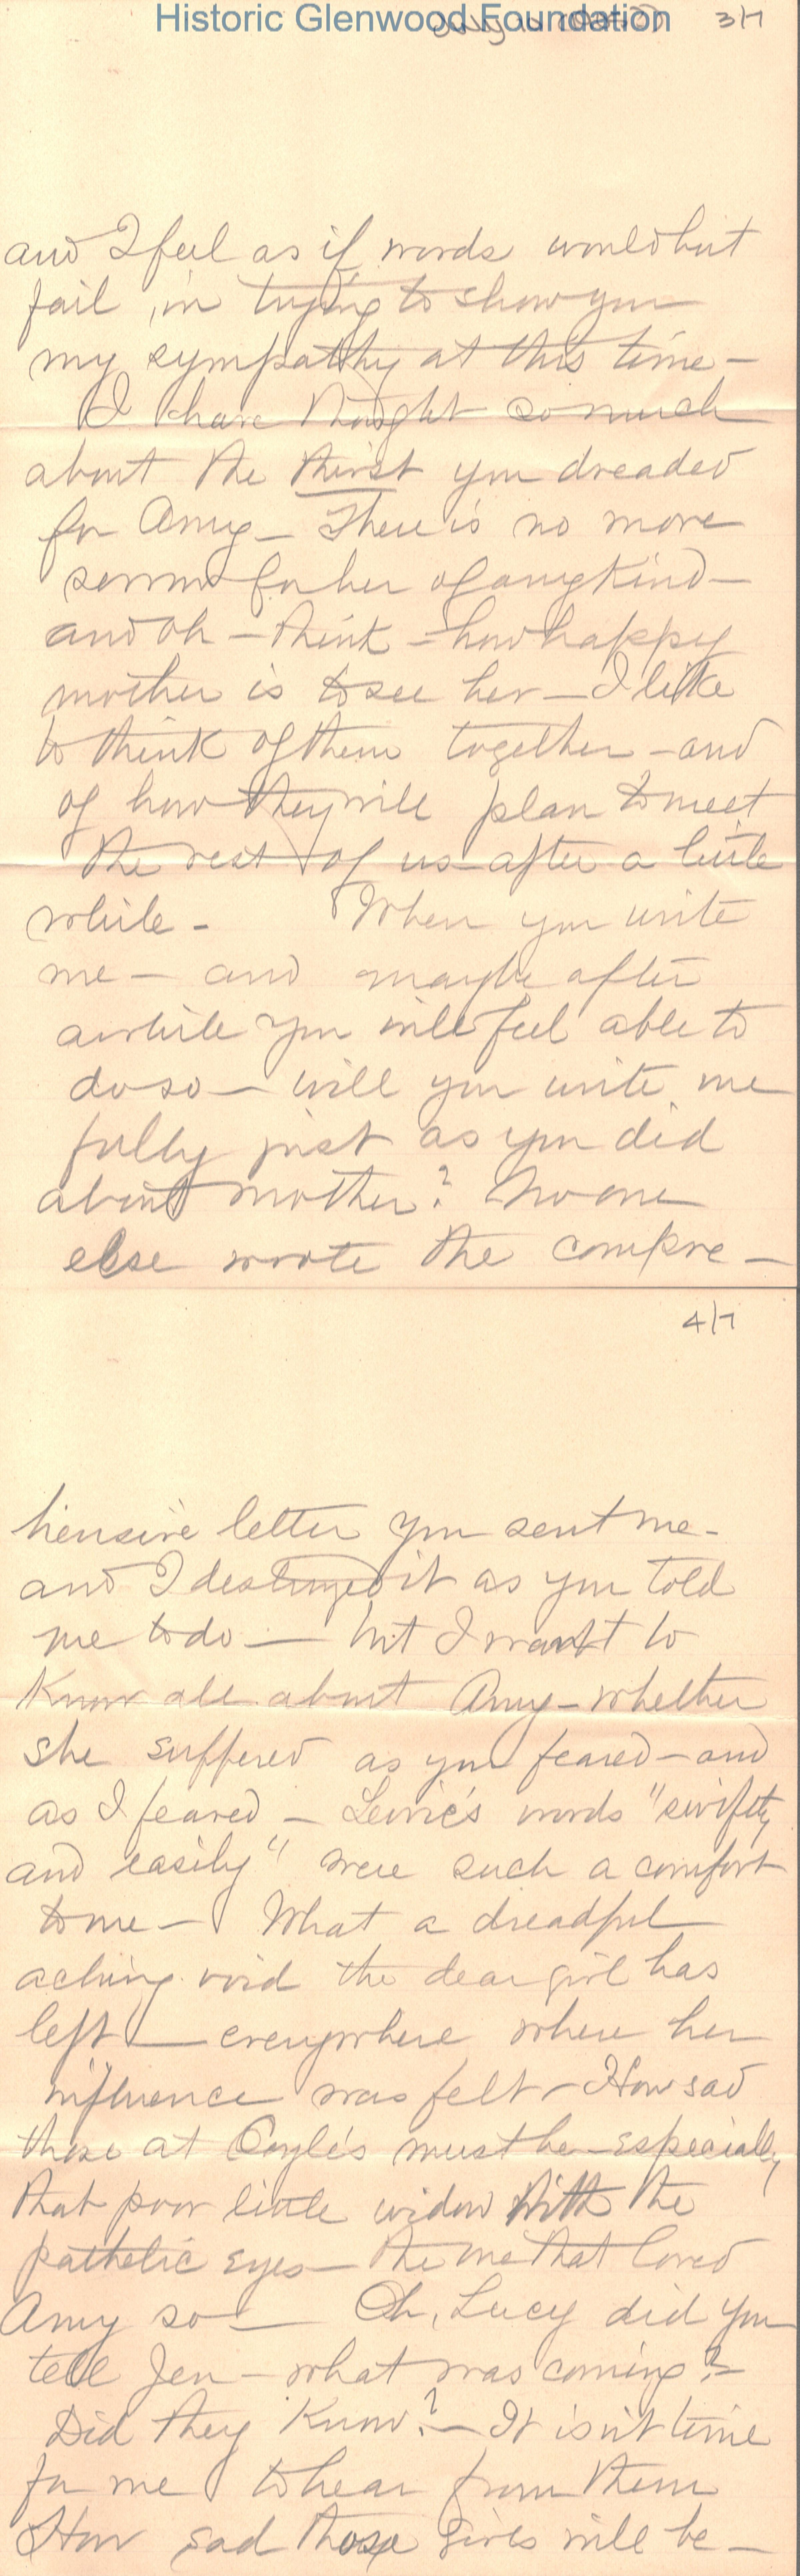 Historic Glenwood Foundation
3/7
and I feel as if words would but
fail, in trying to show you
my sympathy at this time -
I have thought so much
about the thirst you dreaded
for Amy - There is no more
sorrow for her of any kind -
and oh - think - how happy
mother is to see her - I like
to think of them together - and
of how they will plan to meet
the rest of us after a little
while - When you write
me - and maybe after
awhile you will feel able to
do so - will you write me
fully just as you did
about mother? No one
else wrote the compre -
4/7
hensive letter you sent me -
and I destroyed it as you told
me to do - but I want to
know all about Amy - whether
she suffered as you feared - and
as I feared - Lewie's words "swiftly
and easily" were such a comfort
to me - What a dreadful
aching void the dear girl has
left - everywhere where her
influence was felt - How sad
those at Coyle's must be - especially
that poor little widow with the
pathetic eyes - the one that loved
Amy so - Oh, Lucy did you
tell Jen - what was coming? -
Did they know? - It isn't time
for me to hear from them
How sad those girls will be -